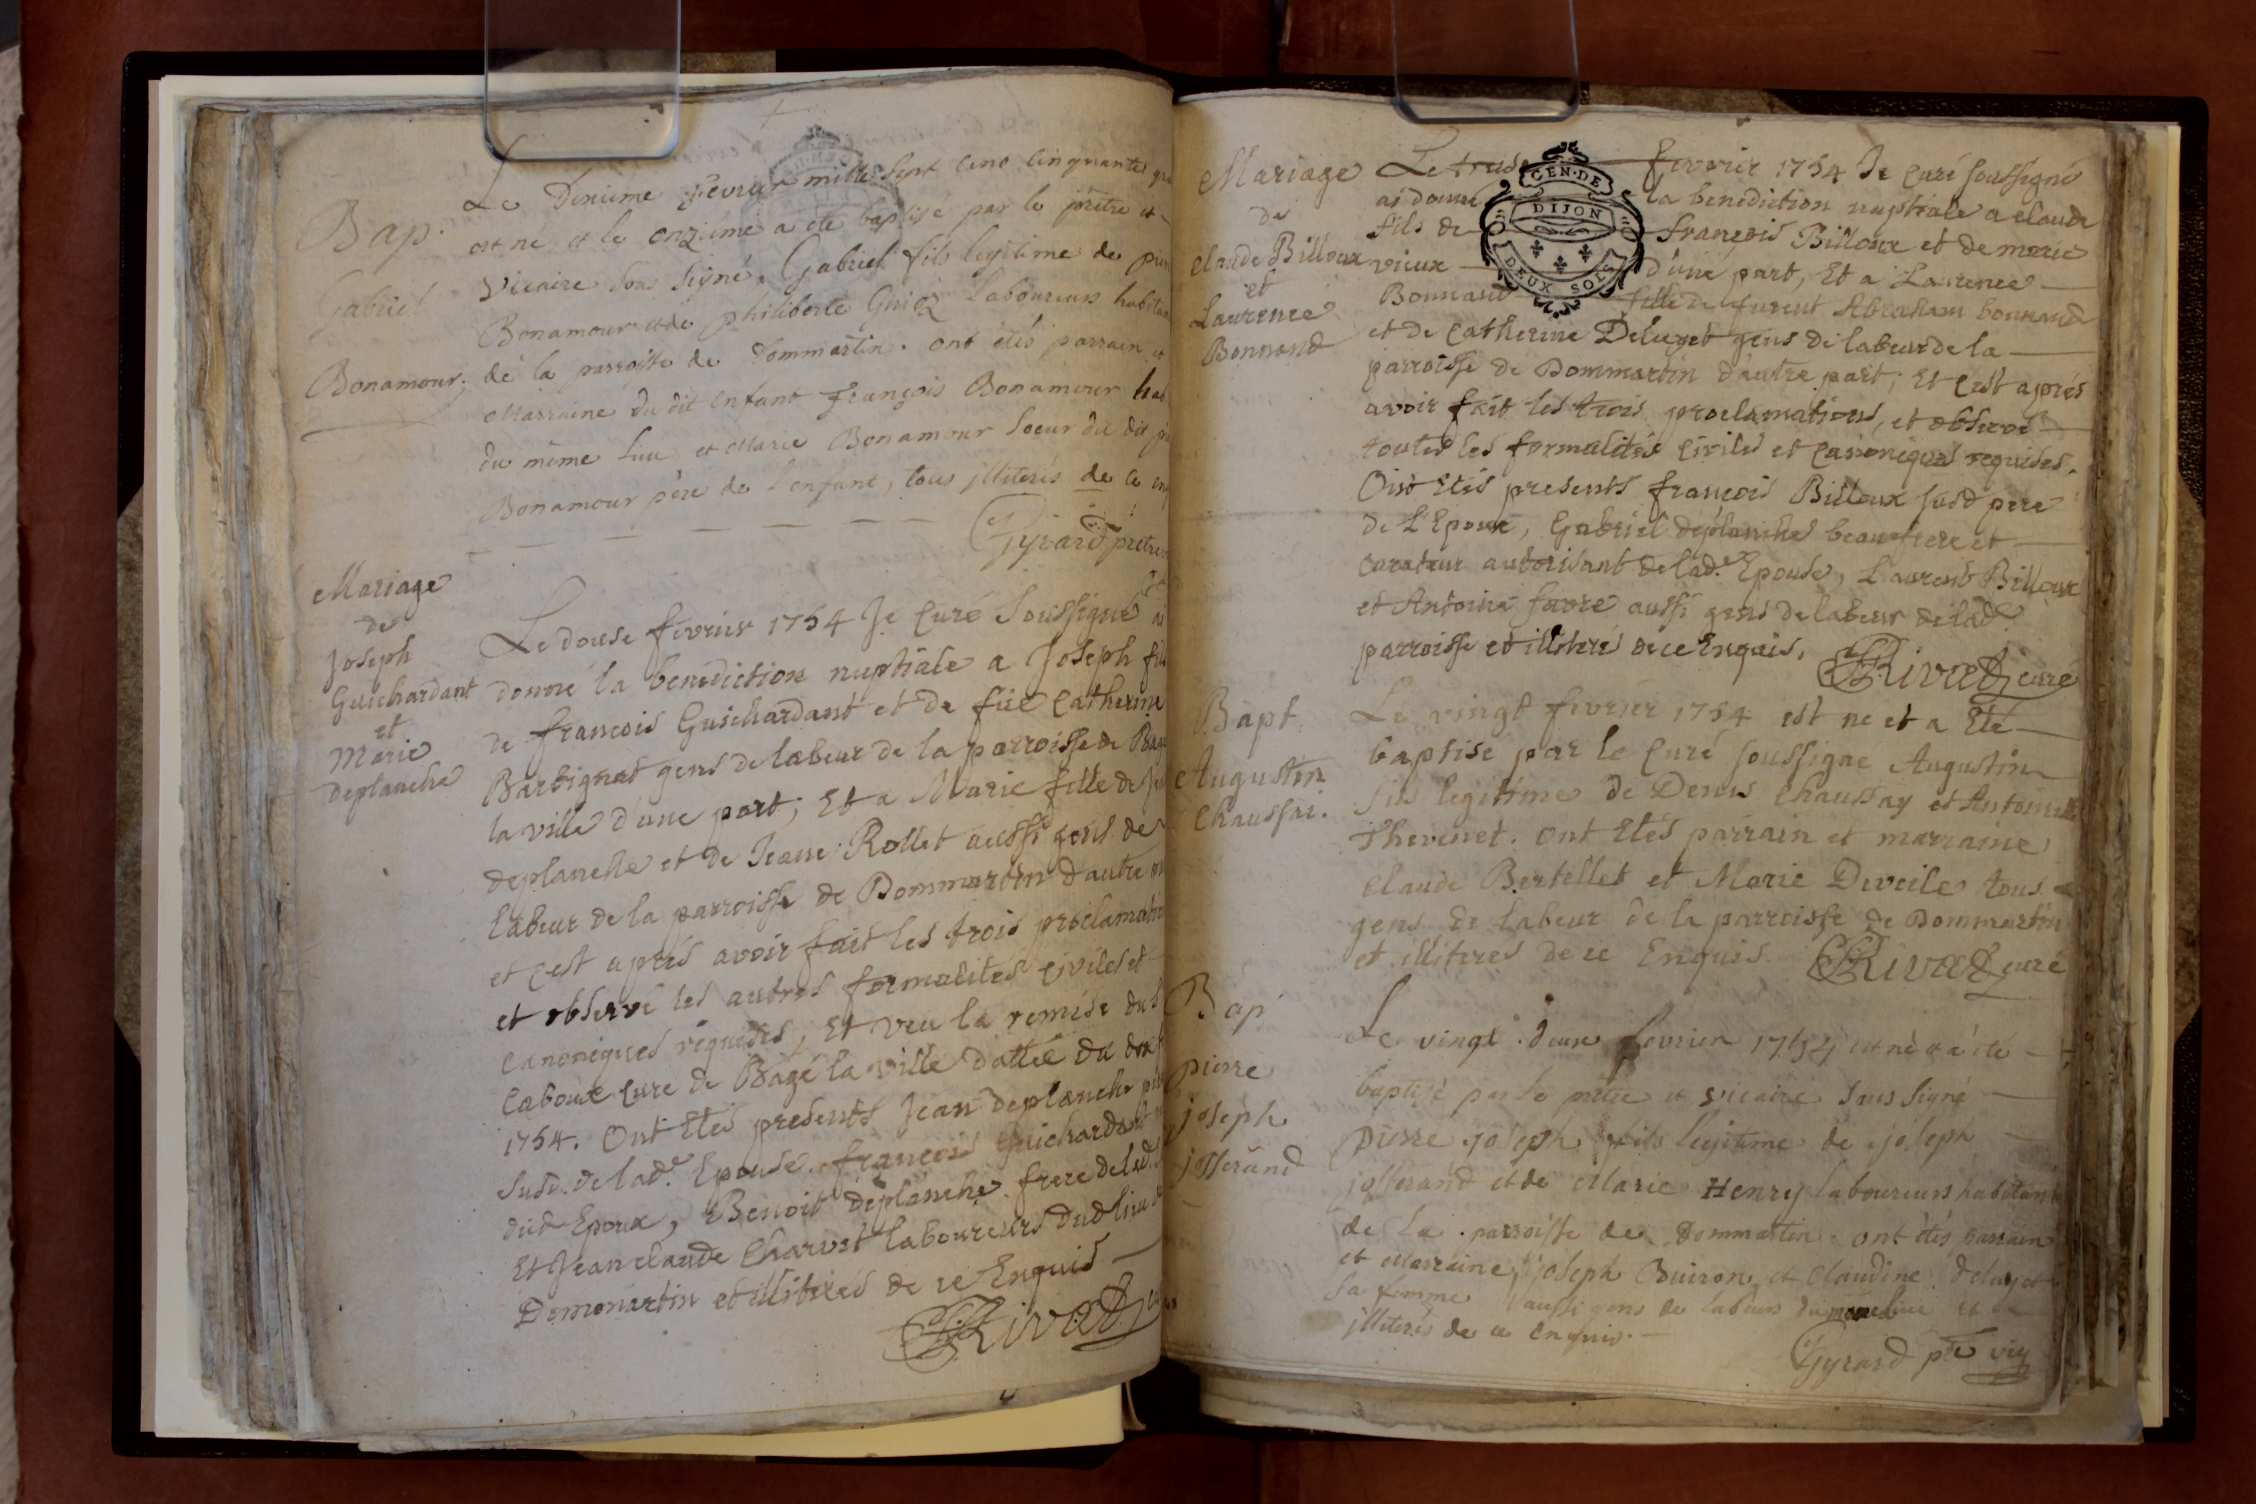 Bap.
Gabriel
Bonamour.
Le Dixieme Fevrier mille sept cent cinquante
est né et le onzieme a ete baptisé par le prêtre et
Vicaire sous signé, Gabriel fils legitime de
Bonamour et de philiberte Guion Laboureurs
de la parroisse de Dommartin. ont étés parrain et
Marraine du dit enfant françois Bonamour
du même Lieu et Marie Bonamour soeur du dit
Bonamour père de l'enfant, tous illiterés de ce
Gyrard prêtre
Mariage
de
Joseph
Guichardant
et
Marie
deplanche
Le douse fevrier 1754 Je Curé Soussigné ai
donné la benediction nuptiale a Joseph fils
de francois Guichardant et de füe Catherine
Barbignat gens de labeur de la parroisse de Bagé
la ville d'une part; Et a Marie fille de
deplanche et de Jeanne Rollet aussi gens de
labeur de la parroisse de Dommartin d'autre
et c'est aprés avoir fait les trois proclamations
et observé les autres formalités civiles et
canoniques requises, Et veu la remise du S
Curé de Bagé la ville dattée du
1754. Ont Etés presents Jean deplanche pere
susd. de lad.e Epouse. francois Guichardant
dud Epoux, Benoit deplanche frere de lad.
Et Jean claude Charvet laboureurs dud lieu
Dommartin et illiterés de ce Enquis
Rivat
Mariage
de
claude Billoux
et
Laurence
Bonnand
Le treise fevrier 1754 Je Curé soussigné
ai donné la benediction nuptiale a claude
fils de françois Billoux et de marie
vieux d'une part, Et a Laurence
Bonnand fille de furent Abraham bonnand
et de Catherine Deluget gens de labeur de la
parroisse de Dommartin d'autre part; Et c'est aprés
avoir fait les trois proclamations, et observé
toutes les formalités civiles et canoniques requises.
Ont Etés presents francois Billoux susd pere
de L'Epoux, Gabriel deplanche beaufrere et
curateur autorisant de lad.e Epouse, Laurent Billoux
et Antoine favre aussi gens de labeur de lad.
parroisse et illiteré de ce Enquis.
Rivat curé
CEN. DE
DIJON
DEUX SOLS
Bapt.
Augustin
Chaussai.
Le vingt fevrier 1754 est né et a Eté
baptisé par le Curé soussigné Augustin
fils legitime de Denis Chaussay et Antoinette
Thevenet. ont Etés parrain et marraine
Claude Bertellet et Marie Deveile tous
gens de labeur de la parroisse de Dommartin
et illiteres de ce Enquis.
Rivat curé
Bap
pierre
joseph
josserand
Le vingt d'eux fevrier 1754 est né & a été
baptisé par le prêtre et vicaire sous signé
pierre joseph fils legitime de joseph
josserand et de Marie Henry laboureurs habitants
de la parroisse de Dommartin. ont étés parrain
et Marraine, joseph Buiron, et claudine deluget
sa femme aussi gens de labeurs du même lieu et
illiterés de ce enquis.
Gyrard ptre vic